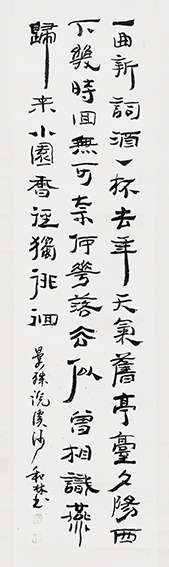 一曲新詞酒一杯去年天氣舊亭臺夕陽西
下幾時回無可奈何花落去似曾相識燕
歸来小園香徑獨徘徊
晏殊浣溪沙 和林書